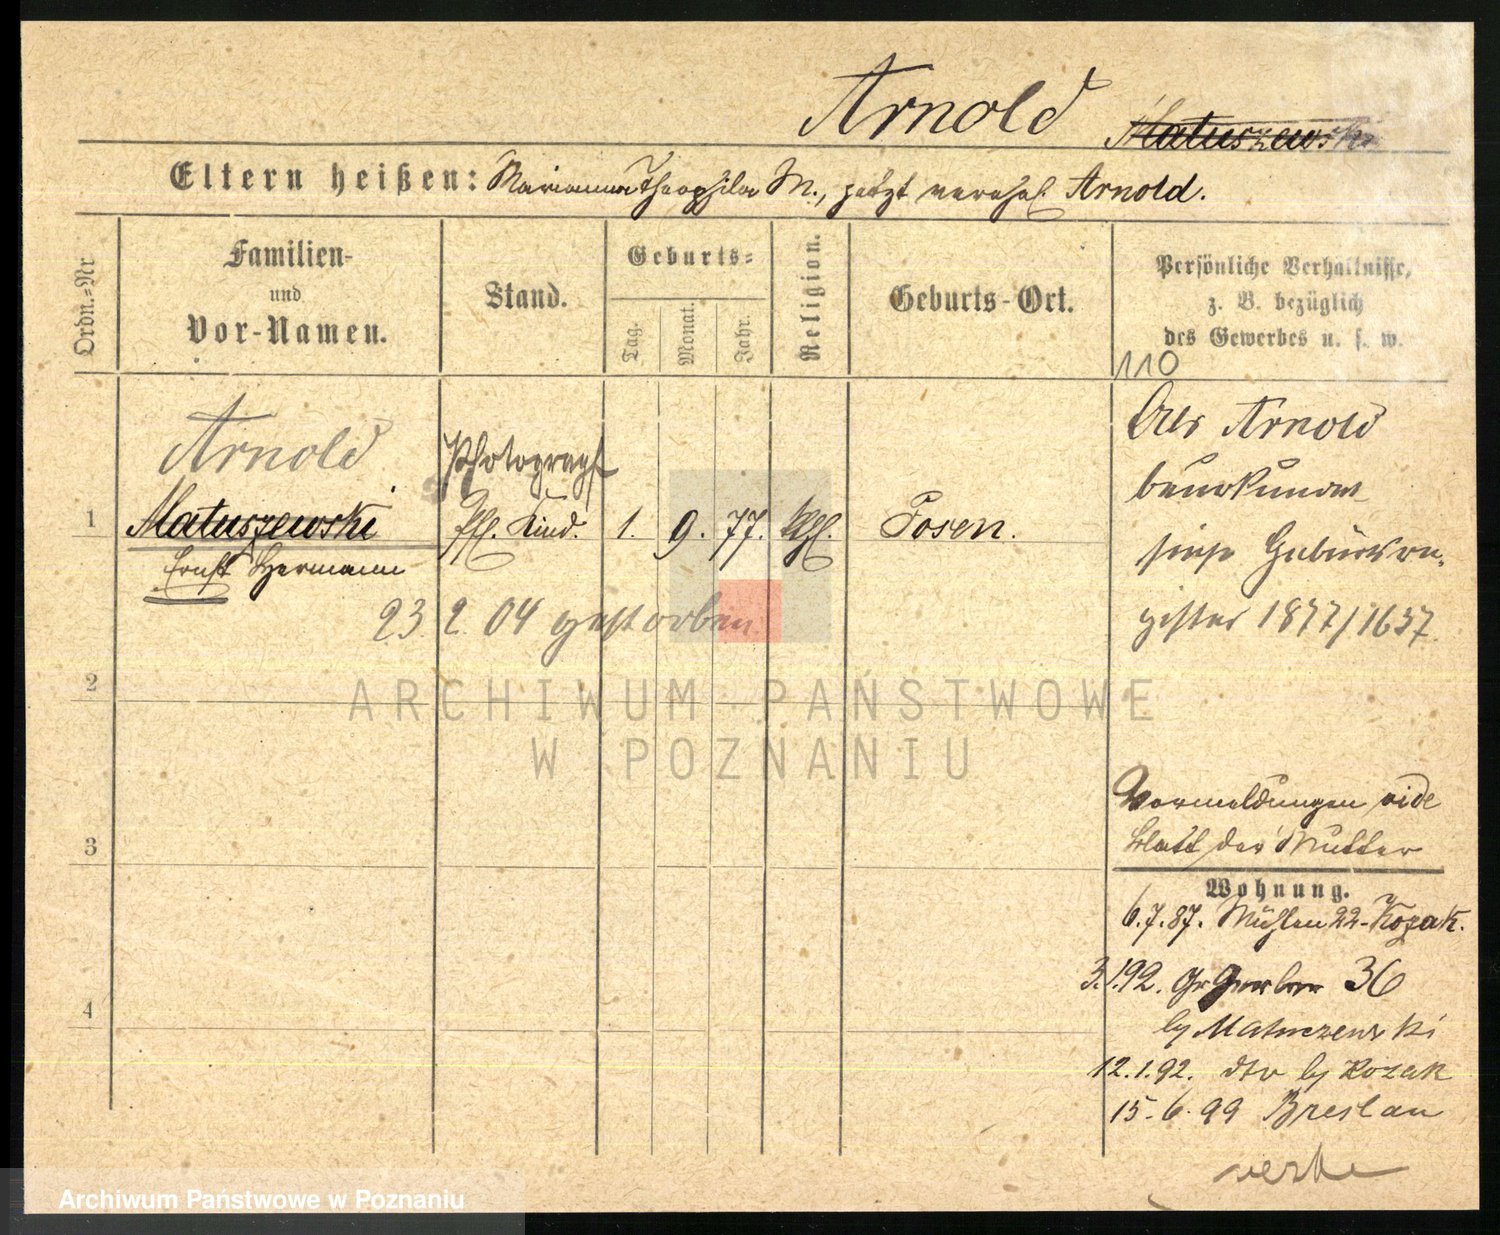 Arnold Matuszewski
Eltern heißen: Marianna Theophila M., jetzt verehel. Arnold.
Ordn.=Nr
Familien-
und
Vor-Namen.
Stand.
Geburts=
Tag.
Monat.
Jahr.
Religion.
Geburts-Ort.
Persönliche Verhältnisse,
z. B. bezüglich
des Gewerbes u. s. w.
110
Arnold
Photograph
1 Matuszewski Kind. 1. 9. 77. kth. Posen.
Ernst Hermann
23. 2. 04 gestorben
Als Arnold
beurkundet
siehe Geburtsre-
gister 1877/1637
2
3
4
Vormeldungen vide
Blatt der Mutter
Wohnung.
6.7.87. Mühlen 22-Kozak.
3.1.92. Gr Gerber 36
by Matuszewski
12.1.92. dto by Kozak
15.6.99 Breslau
ARCHIWUM PAŃSTWOWE
W POZNANIU
Archiwum Państwowe w Poznaniu